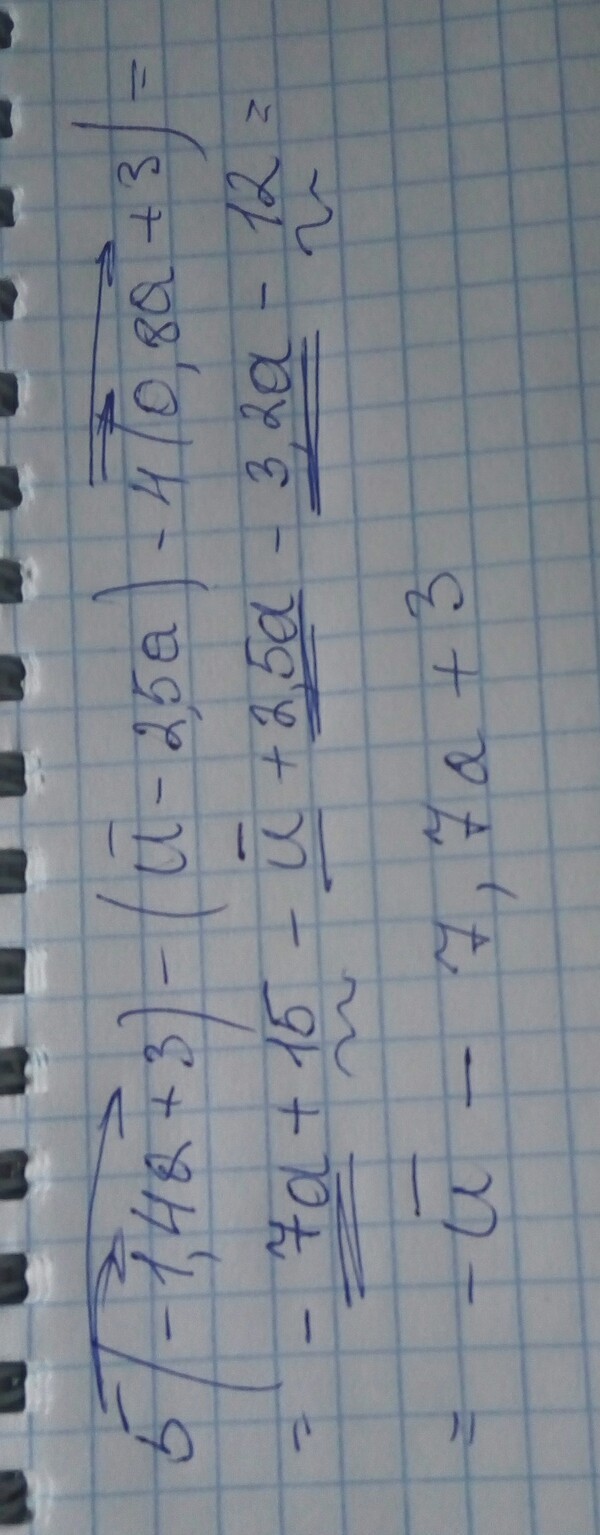 5(-1,4a+3)-(ū-2,5a)-4(0,8a+3)=
= -7a+15-ū+2,5a-3,2a-12=
= -ū-7,7a+3